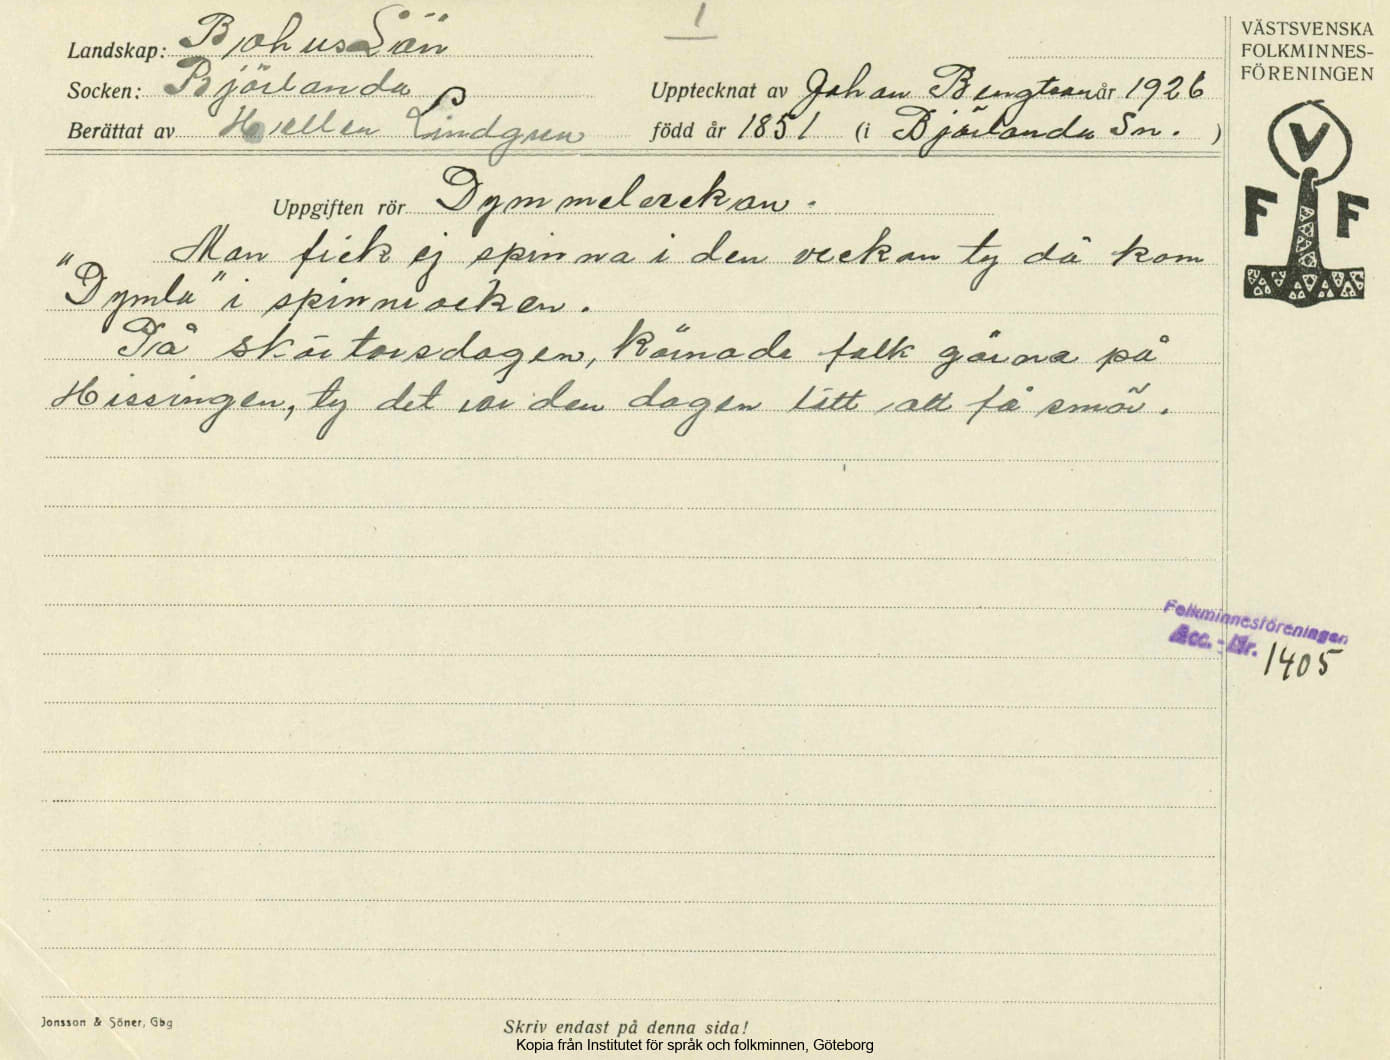 1
VÄSTSVENSKA
FOLKMINNES-
FÖRENINGEN
V
F F
Landskap: Bohus Län
Socken: Björlanda
Upptecknat av Johan Bengtson år 1926
Berättat av Hellen Lindgren
född år 1851 (i Björlanda Sn. )
Uppgiften rör Dymmelveckan.
Man fick ej spinna i den veckan ty då kom
"Dymla" i spinnrocken.
På skärtorsdagen, kärnade folk gärna på
Hissingen, ty det var den dagen lätt att få smör.
Folkminnesföreningen
Acc. - Nr. 1405
Jonsson & Söner, Gbg
Skriv endast på denna sida!
Kopia från Institutet för språk och folkminnen, Göteborg